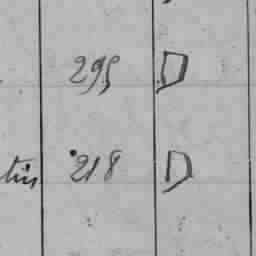 295 D
tin 218 D